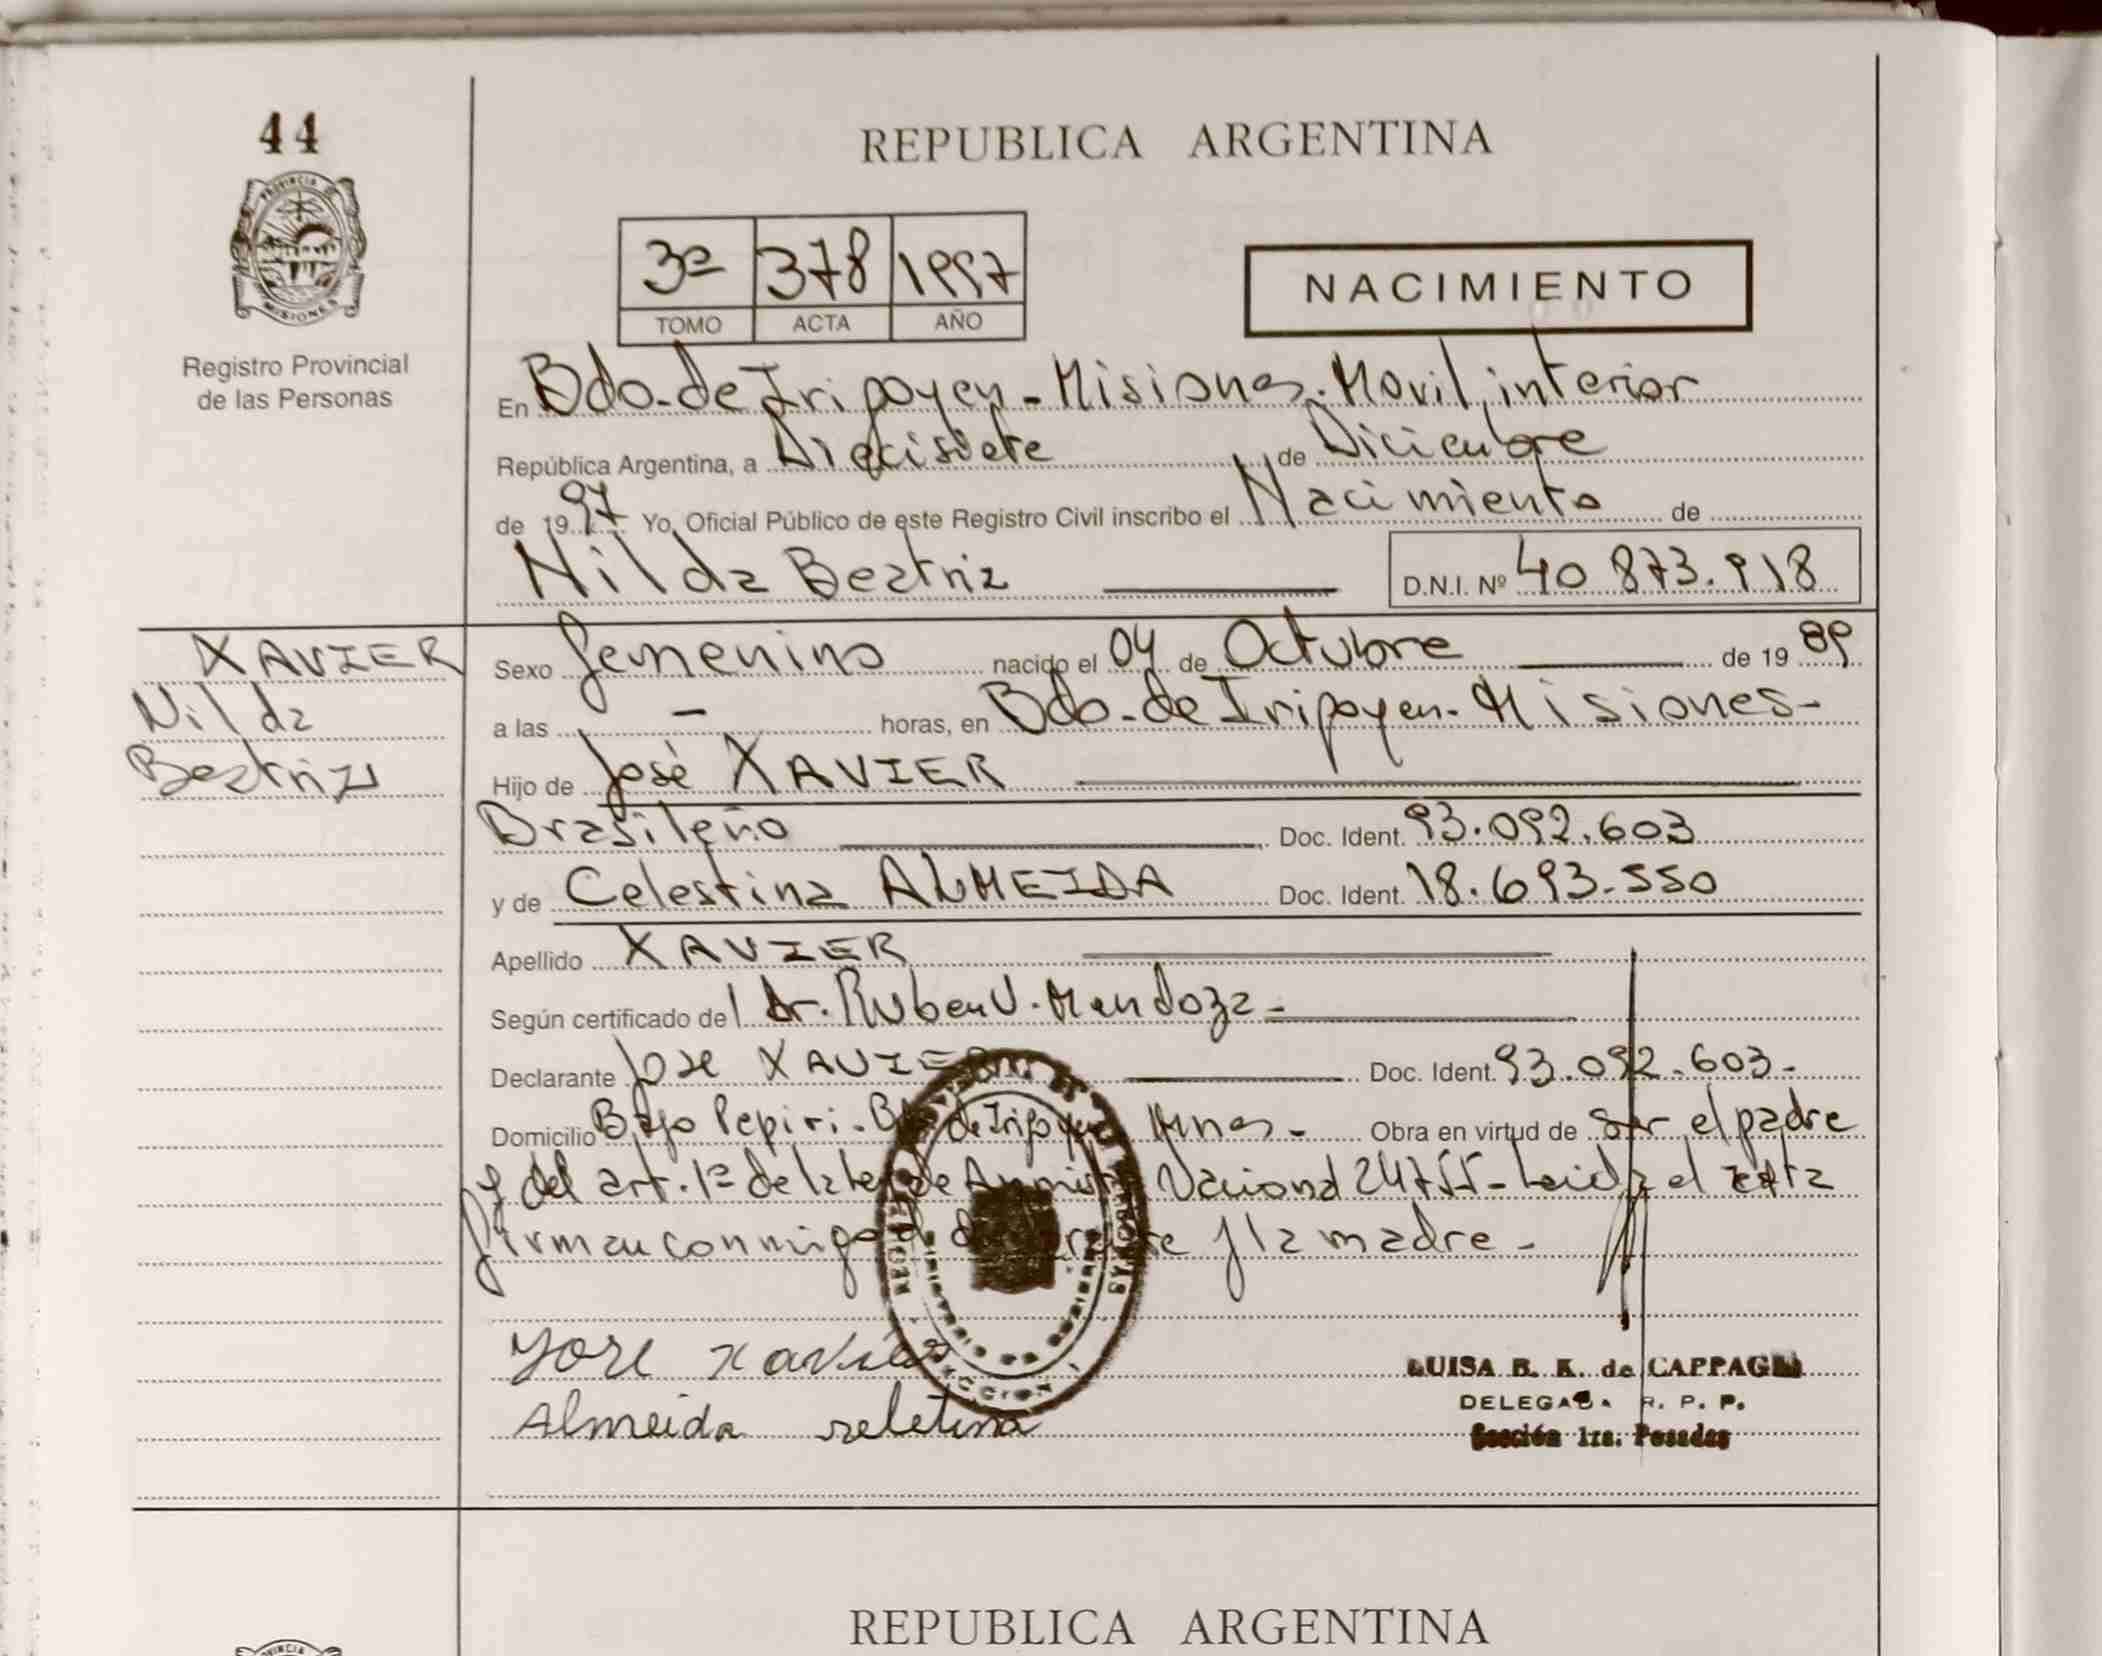 44
REPUBLICA ARGENTINA
PROVINCIA DE
MISIONES
Registro Provincial
de las Personas
3º 378 1997
TOMO ACTA AÑO
NACIMIENTO
En Bdo. de Irigoyen - Misiones. Movil interior
República Argentina, a Diecisiete de Diciembre
de 1997 Yo, Oficial Público de este Registro Civil inscribo el Nacimiento de
Nilda Beatriz D.N.I. Nº 40 873.918
XAVIER
Nilda
Beatriz
Sexo femenino nacido el 04 de Octubre de 1989
a las - horas, en Bdo. de Irigoyen - Misiones -
Hijo de José XAVIER
Brasileño Doc. Ident. 93.092.603
y de Celestina ALMEIDA Doc. Ident. 18.693.550
Apellido XAVIER
Según certificado del Dr. Ruben V. Mendoza -
Declarante Jose XAVIER Doc. Ident. 93.092.603 -
Domicilio Bajo Pepiri - Bdo de Irigoyen Mnes - Obra en virtud de ser el padre
y del art. 1º de la ley de Amnistia Nacional 24755 - Leida el acta
firman conmigo el declarante y la madre -
Jose Xavier
Almeida seletina
LUISA B. K. de
DELEGADA R. P. P.
Sección 1ra. Posadas
REPUBLICA ARGENTINA